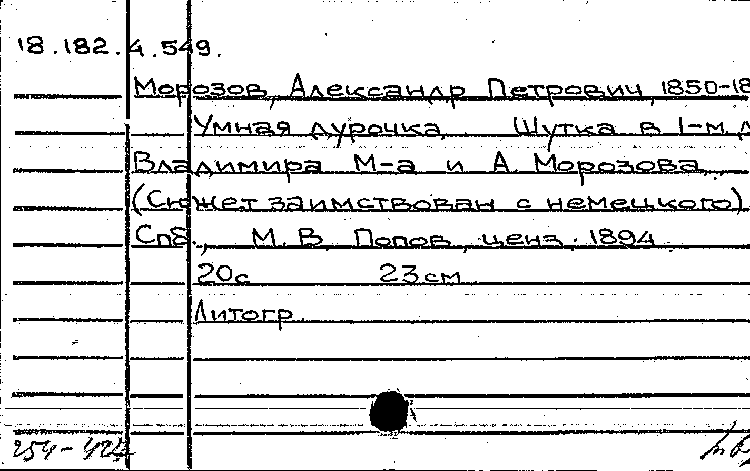 18.182.4.549.
Морозов, Александр Петрович, 1850-18
Умная дурочка. Шутка в 1-м д
Владимира М-а и А. Морозова.
(Сюжет заимствован с немецкого).
Спб., М.В. Попов, ценз. 1894.
20с 23см
Литогр.